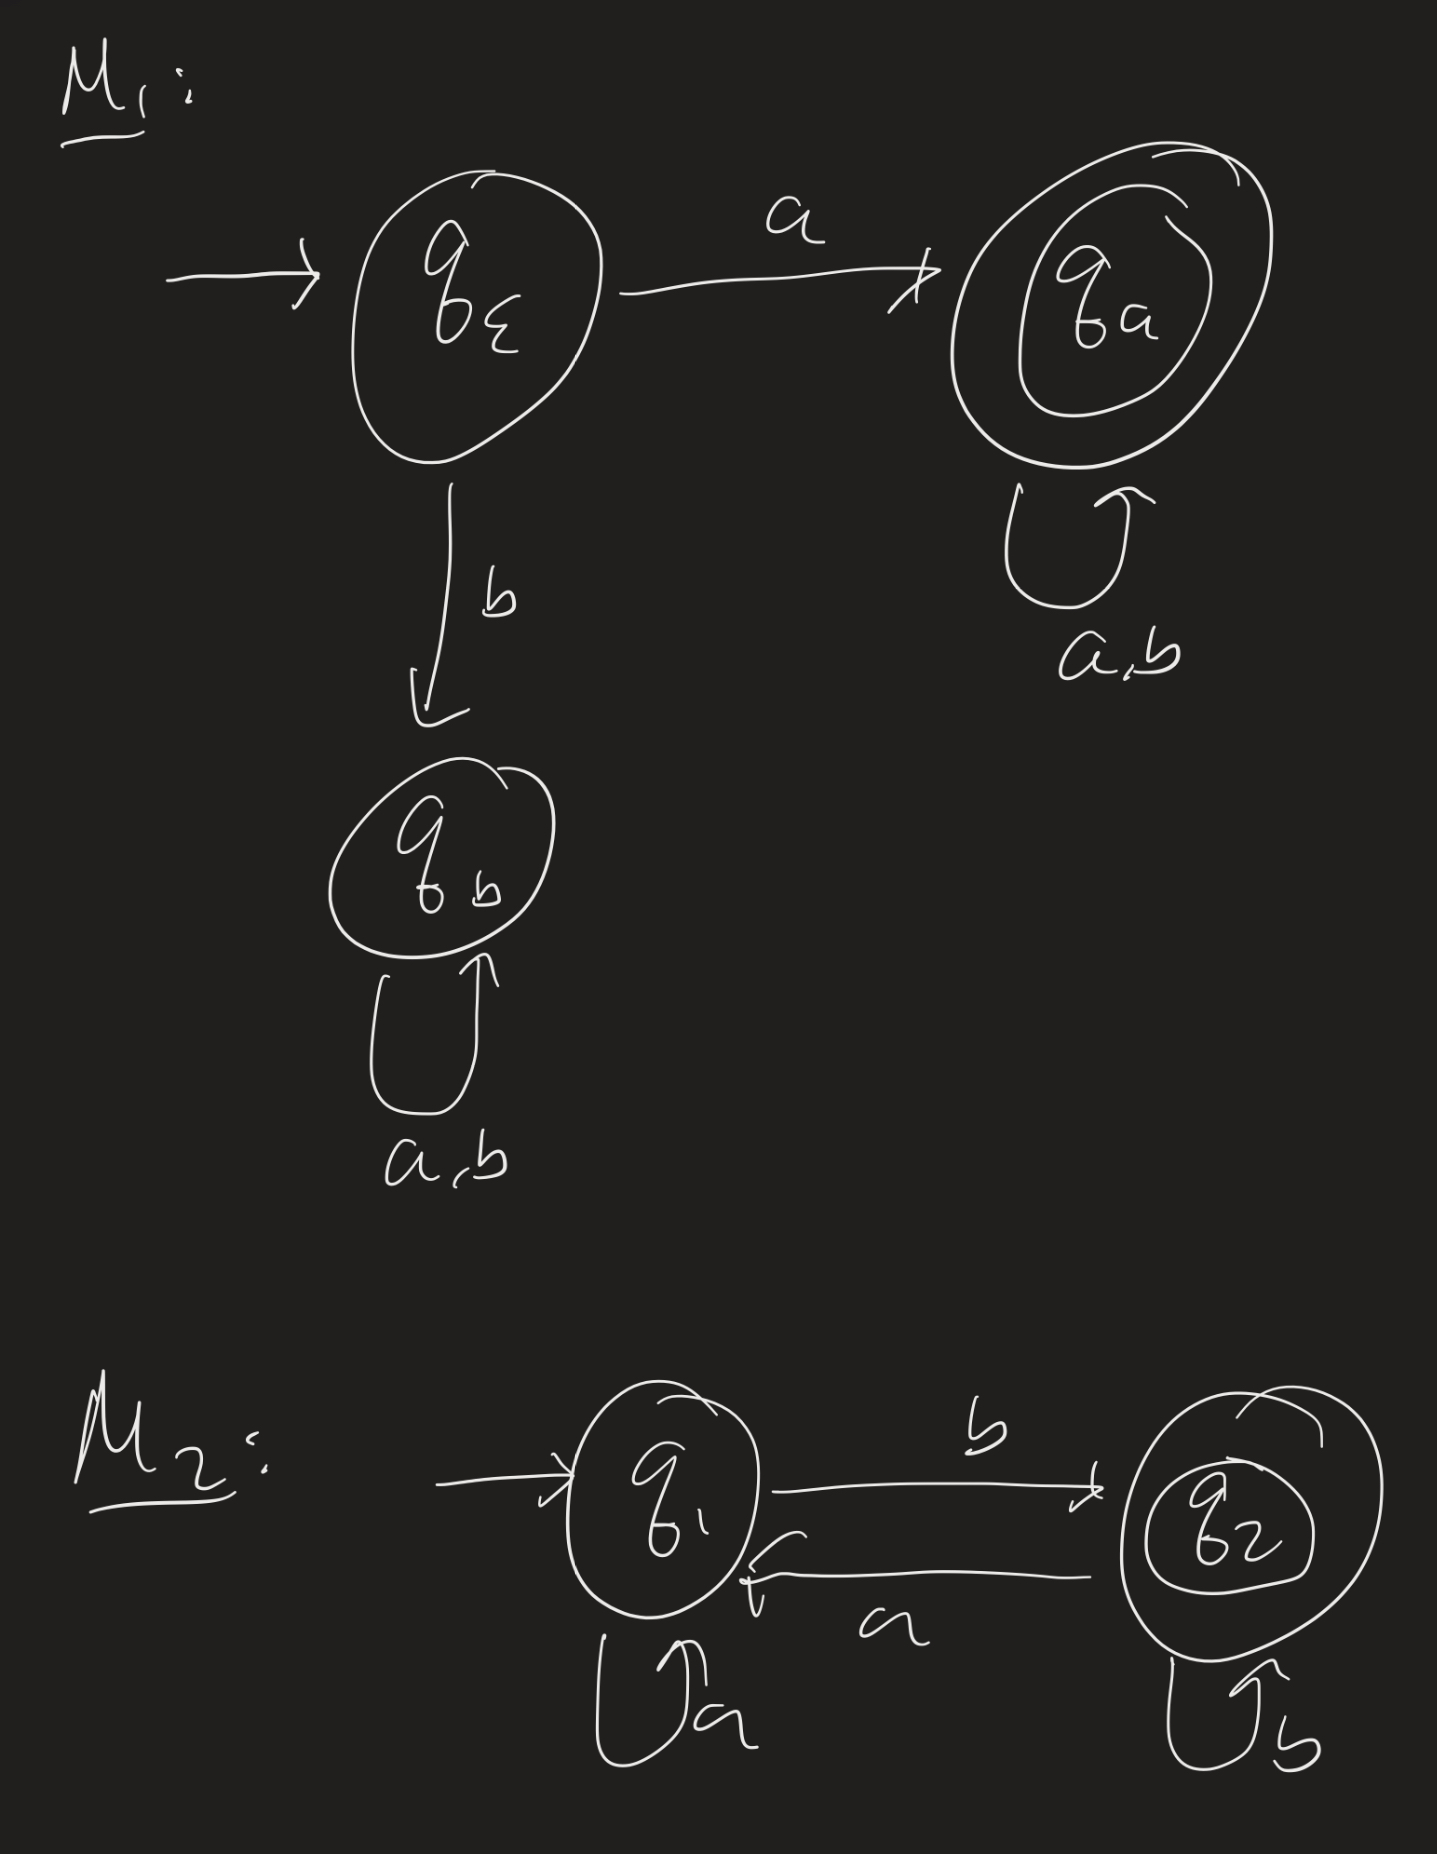 M₁:
a
qε
qa
b
a,b
qb
a,b
M₂:
b
q₁
q₂
a
a
b